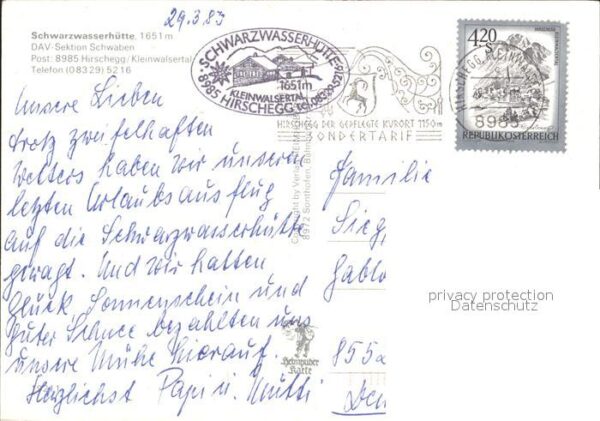 29.3.83
Schwarzwasserhütte, 1651m
DAV-Sektion Schwaben
Post: 8985 Hirschegg/Kleinwalsertal
Telefon (08329) 5216
SCHWARZWASSERHÜTTE
1651m
KLEINWALSERTAL
8985 HIRSCHEGG Tel. 08329-5216
HIRSCHEGG DER GEPFLEGTE KURORT 1150m
SONDERTARIF
HIRSCHEGG, KLEINWALSERTAL
8985
4,20
S
REPUBLIK ÖSTERREICH
Unsere Lieben
trotz zweifelhaften
Wetters haben wir unseren
letzten Urlaubsausflug
auf die Schwarzwasserhütte
gewagt. Und wir hatten
Glück Sonnenschein und
guter Schnee bezahlten uns
unsere Mühe hierauf.
Herzlichst Papi u. Mutti
Copyright by Verlag
8972 Sonthofen,
Heimhuber
Karte
Familie
Sieg
Gablo
855
privacy protection
Datenschutz